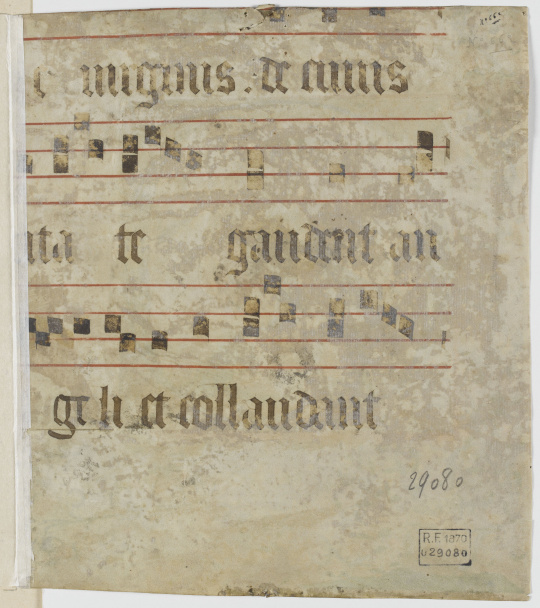 e uirginis. de cuius
ta te gaudent an
geli et collaudant
29080
R.F. 1870
029080